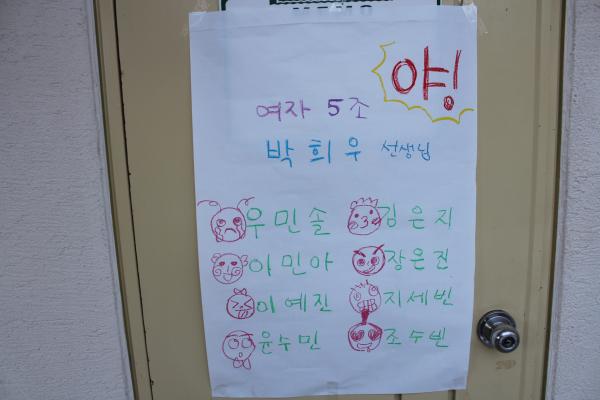 야!
여자 5조
박희우 선생님
우민솔 김은지
이민아 장은진
이예진 지세빈
윤수민 조수빈